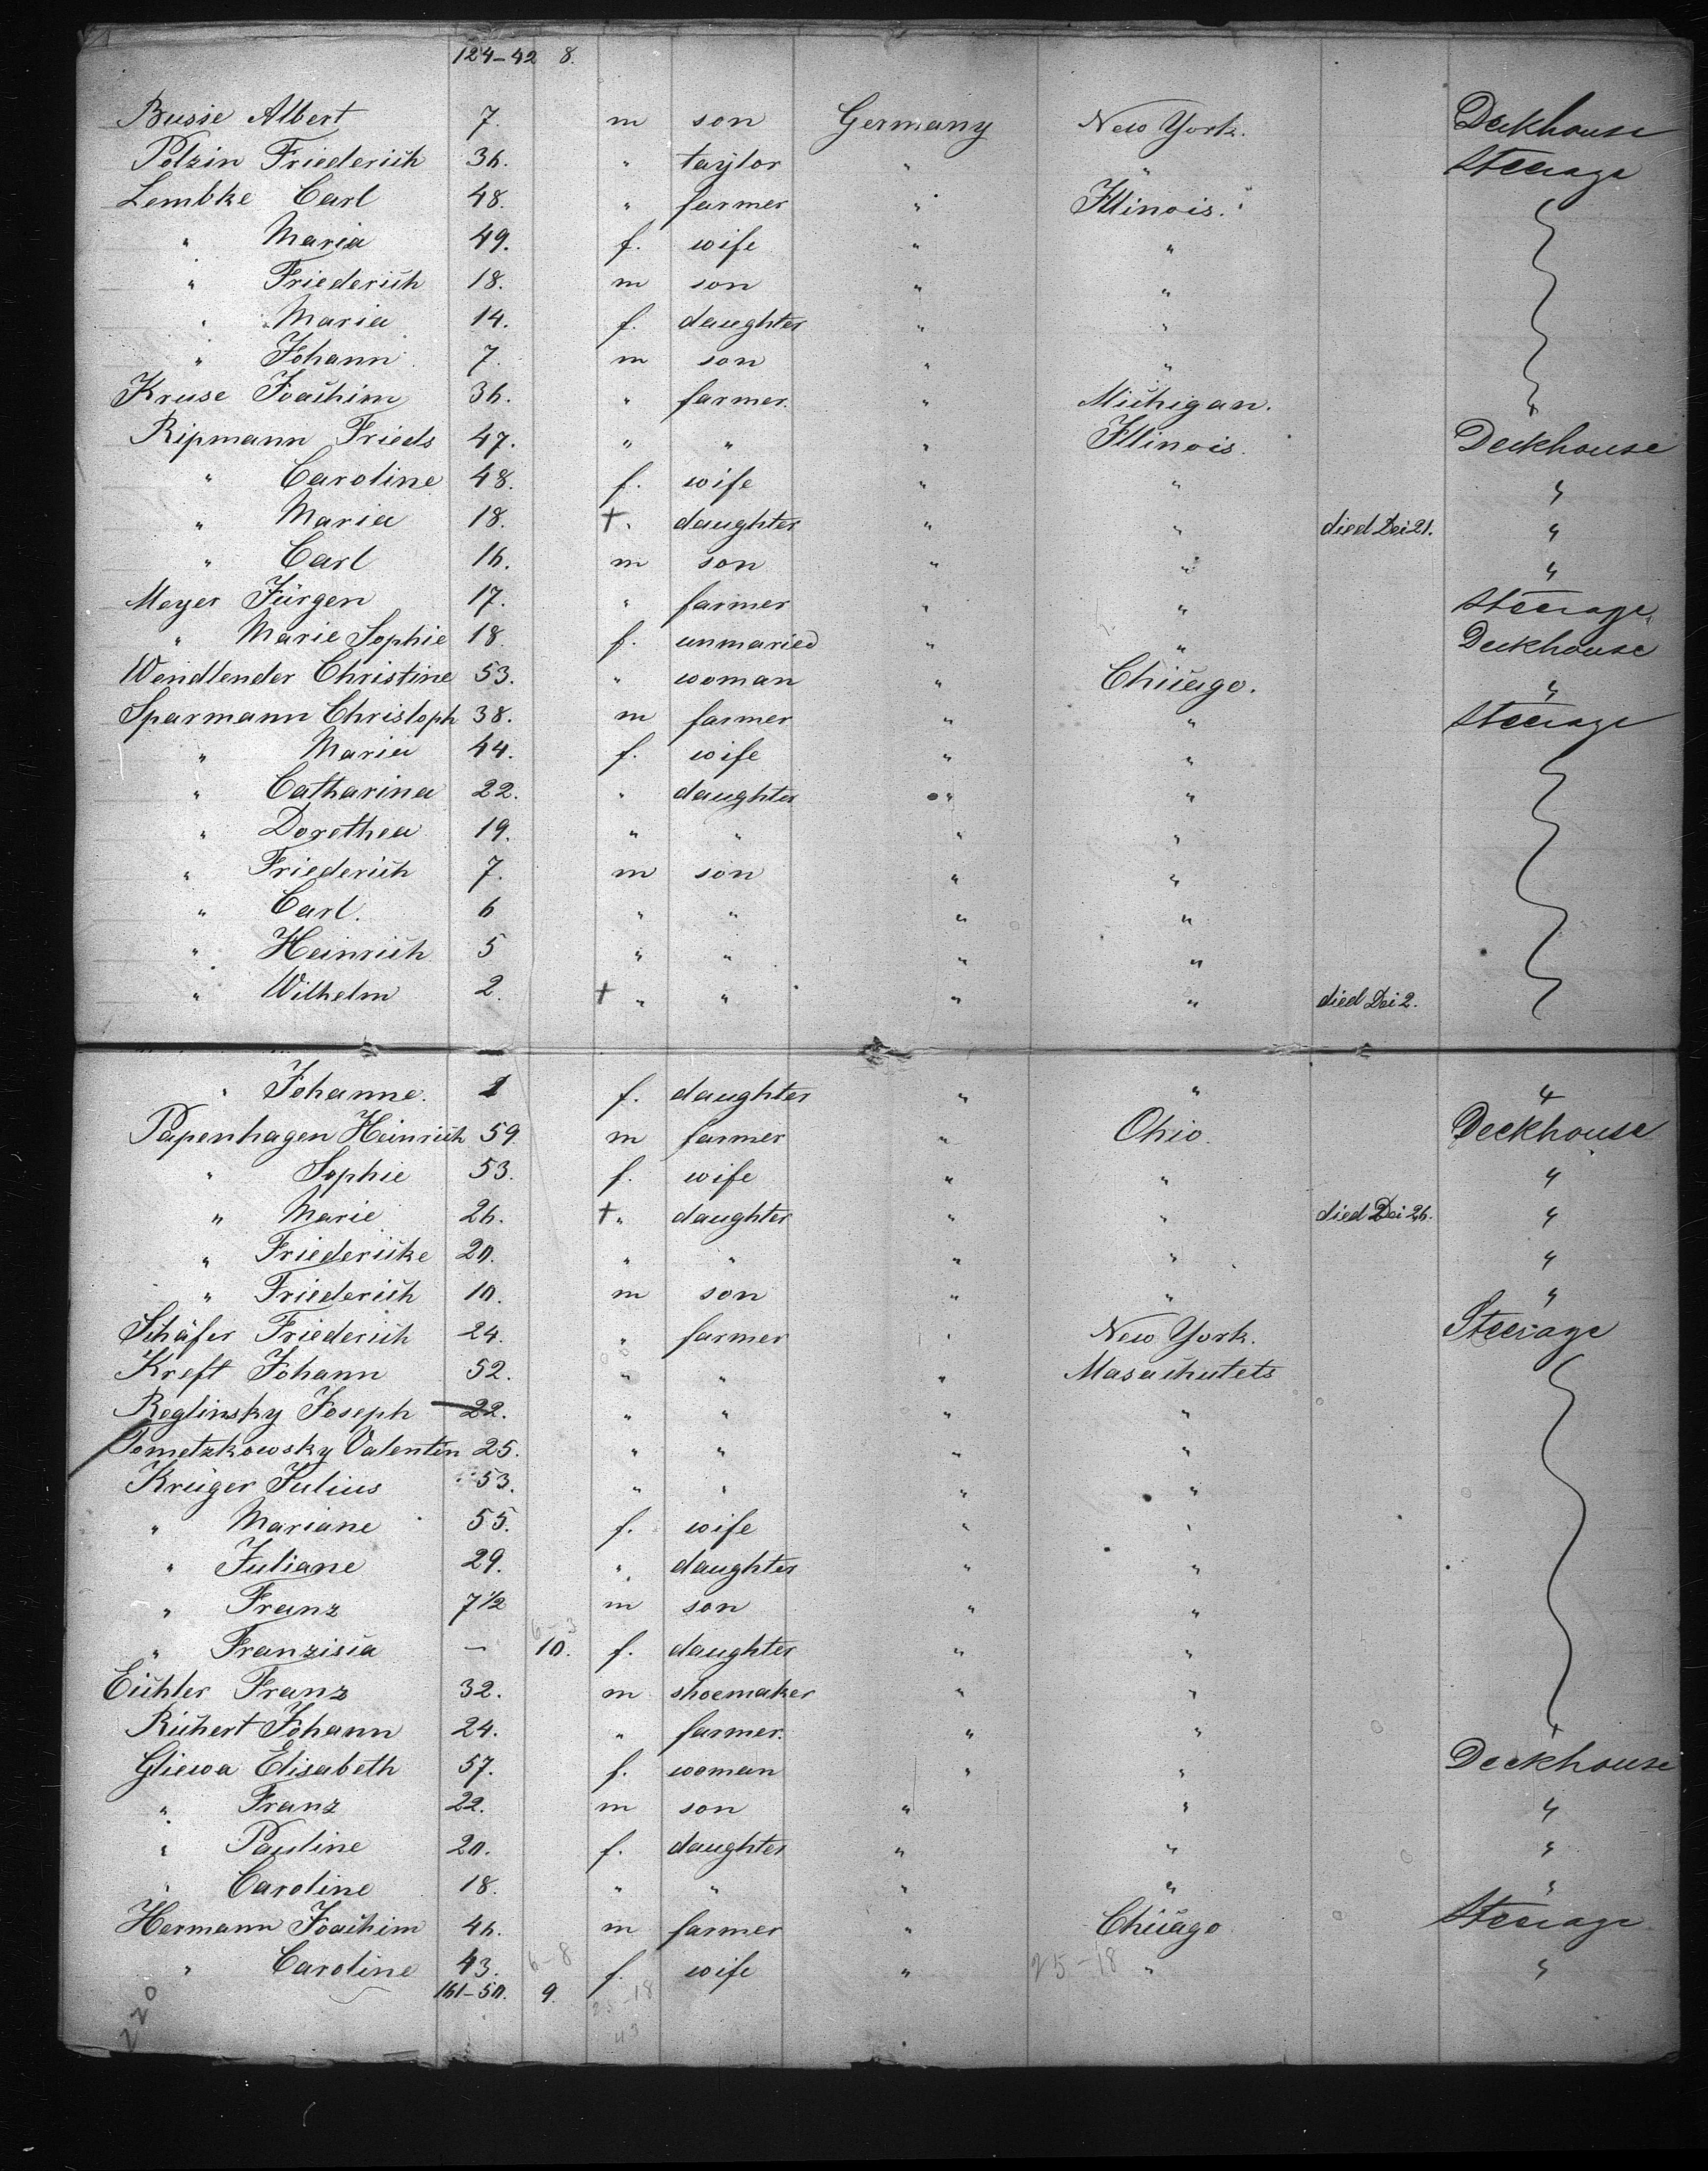 124-42 8.
Busse Albert 7. m son Germany New York. Deckhouse
Polzin Friederich 36. " taylor " " Steerage
Lembke Carl 48. " farmer " Illinois.
" Maria 49. f. wife " "
" Friederich 18. m son " "
" Maria 14. f. daughter " "
" Johann 7. m son " "
Kruse Joachim 36. " farmer. " Michigan. "
Ripmann Frieds 47. " " " Illinois. Deckhouse
" Caroline 48. f. wife " " "
" Maria 18. † " daughter " " died Dec 21. "
" Carl 16. m son " " "
Meyer Jürgen 17. " farmer " " Steerage.
" Marie Sophie 18 f. unmaried " " Deckhouse
Wendlender Christine 53. " woman " Chicago. "
Sparmann Christoph 38. m farmer " " Steerage
" Maria 44. f. wife " "
" Catharina 22. " daughter " "
" Dorothea 19. " " " "
" Friederich 7. m son " "
" Carl. 6 " " " "
" Heinrich 5 " " " "
" Wilhelm 2. † " " " " died Dec 2.
" Johanne. 1 f. daughter " " "
Papenhagen Heinrich 59. m farmer " Ohio. Deckhouse
" Sophie 53. f. wife " " "
" Marie 26. † " daughter " " died Dec 26. "
" Friedericke 20. " " " " "
" Friederich 10. m son " " "
Schäfer Friederich 24. " farmer " New York. Steerage
Kreft Johann 52. " " " Masachutets
Reglinsky Joseph 22. " " " "
Tometzkowsky Valentin 25. " " " "
Krüger Julius 53. " " " "
" Mariane 55. f. wife " "
" Juliane 29. " daughter " "
" Franz 7 1/2 m son " "
6-3
" Franzisca — 10. f. daughter " "
Eichler Franz 32. m shoemaker " "
Richert Johann 24. " farmer. " " "
Gliewa Elisabeth 57. f. woman " " Deckhouse
" Franz 22. m son " " "
" Pauline 20. f. daughter " " "
" Caroline 18. " " " " "
Hermann Joachim 46. m farmer " Chicago Steerage
" Caroline 43. 6-8 f. wife " 25-18 " "
161-50. 9. 25-18
43
220